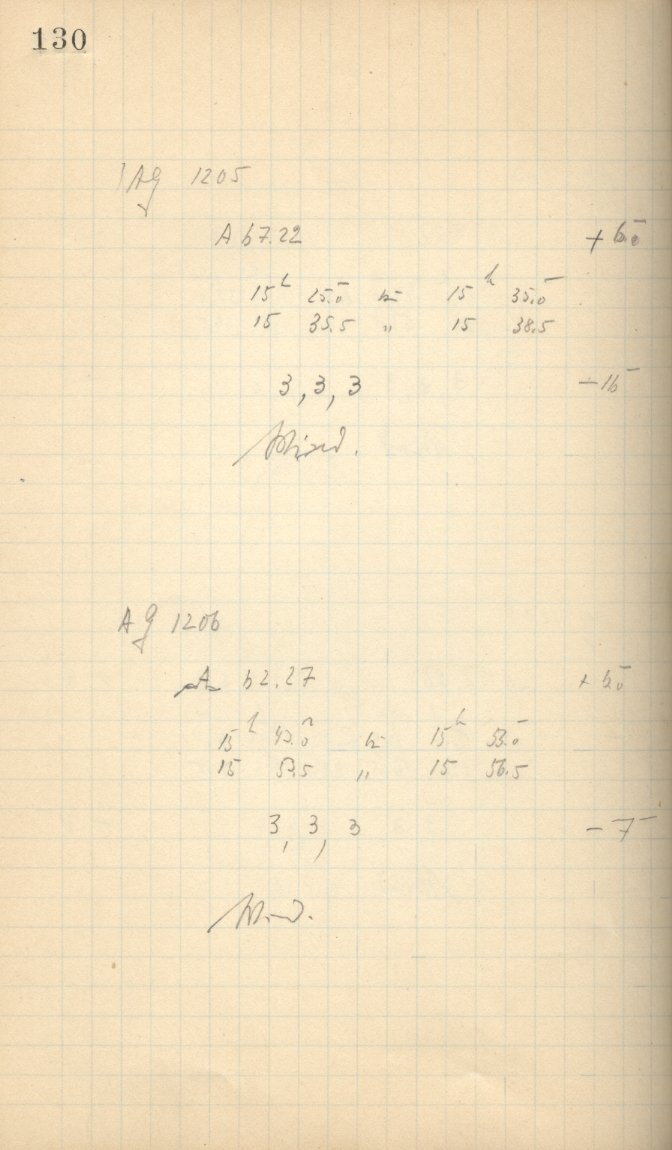 130
Ag 1205
A 67.22 +6.0
15h 25.0m bis 15h 35.0m
15 35.5 „ 15 38.5
3, 3, 3 -16
Wind.
Ag 1206
A 62.27 +6.0
15h 43.0m bis 15h 53.0m
15 53.5 „ 15 56.5
3, 3, 3 -7
Wind.